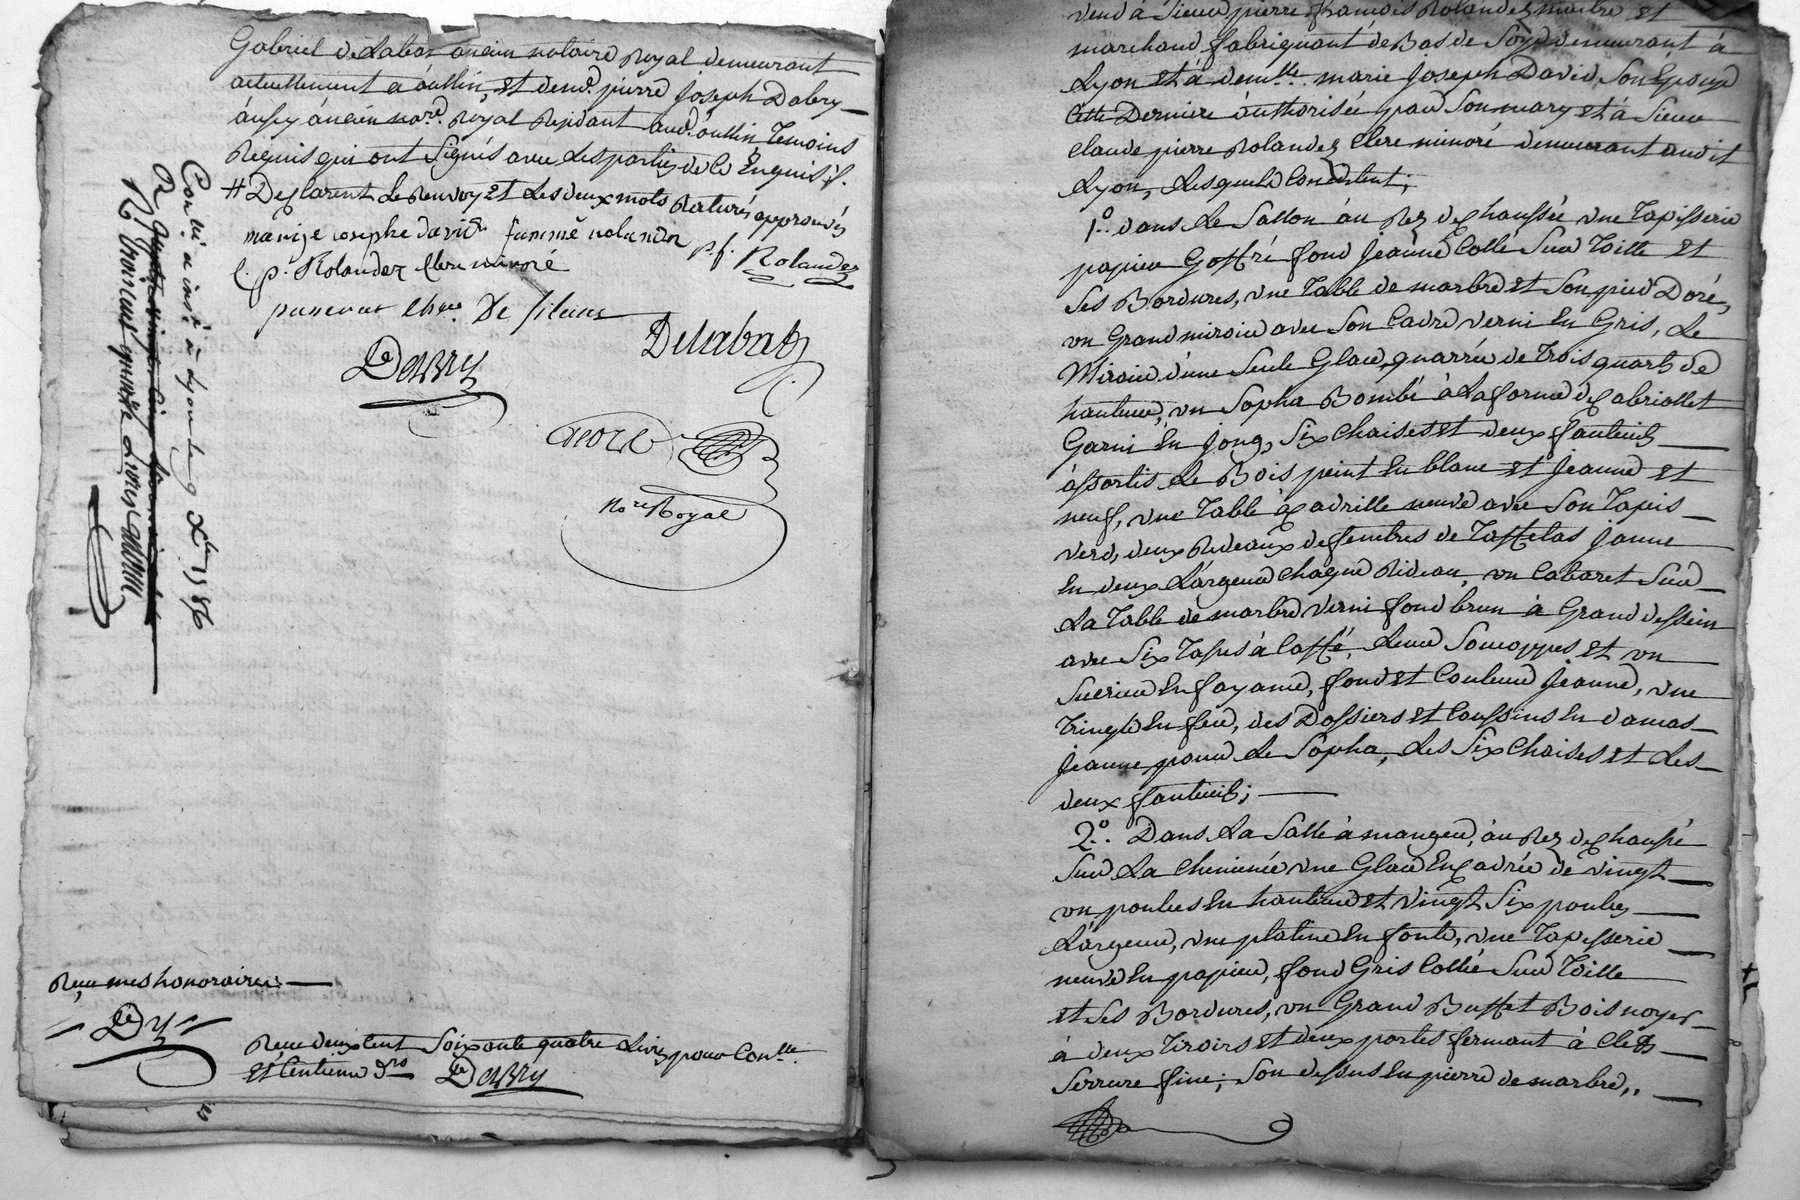 Gabriel delabat, ancien notaire Royal demeurant
actuellement a oullin, et demr. pierre Joseph Dabry
aussy ancien nore. Royal Residant aud. oullin temoins
Requis qui ont signés avec les parties de ce Enquis /.
# Declarent le Renvoy et les deux mots Raturés approuvés
marige iosephe david famme rolandez
p. f. Rolandez
C. p. Rolandez Clerc minoré
De
Delabat
Dabry
nore Royal
Controllé a insé a Lyon le 9 Xbre 1786
R. trois cent quinze Livres
Reçu mes honoraires
Dy
Reçu deux cent soixante quatre Livres pour Conlle
et Centieme Drs Dabry
vend à Sieur pierre françois Rolandez maitre et
marchand fabriquant de Bas de Soye demeurant à
Lyon et à demlle. marie Joseph David Son Epouse
Cette Derniere authorisée par Son mary et à Sieur
Claude pierre Rolandez Clerc minoré demeurant audit
Lyon, Lesquels Consistent;
1.° dans le Sallon au Rez de Chaussée une tapisserie
papier Goffré fond Jeaune Collé Sur toille et
Ses Bordures, une table de marbre et Son pied Doré,
un Grand miroir avec Son Cadre verni en Gris, Le
Miroir d'une Seule Glace, quarrée de trois quarts de
hauteur, un Sopha Bombé à La forme de Cabriollet
Garni en Jong, Six chaises et deux fauteuils
assortis Le Bois peint en blanc et Jeaune et
neuf, une table à quadrille neuve avec Son tapis
verd, deux Rideaux de fenetres de taffetas Jaune
en deux Largeur chaque Rideau, un Cabaret Sur
La table de marbre verni fond brun à Grand dessein
avec Six tasses à Caffé, Leur Soucoppes et un
Sucrier en fayance, fond et Couleur Jeaune, une
tringle en fer, des Dossiers et Coussins en damas
Jeaune pour Le Sopha, Les Six Chaises et Les
deux fauteuils;
2.° Dans La Salle à manger, au Rez de chaussée
Sur La Cheminée une Glace Encadrée de vingt
un pouces en hauteur et vingt Six pouces
Largeur, une platine en fonte, une tapisserie
neuve en papier, fond Gris Collée Sur toille
et Ses Bordures, un Grand Buffet Bois noyer
à deux tiroirs et deux portes fermant à Clefs
Serrure fine; Son dessus en pierre de marbre,